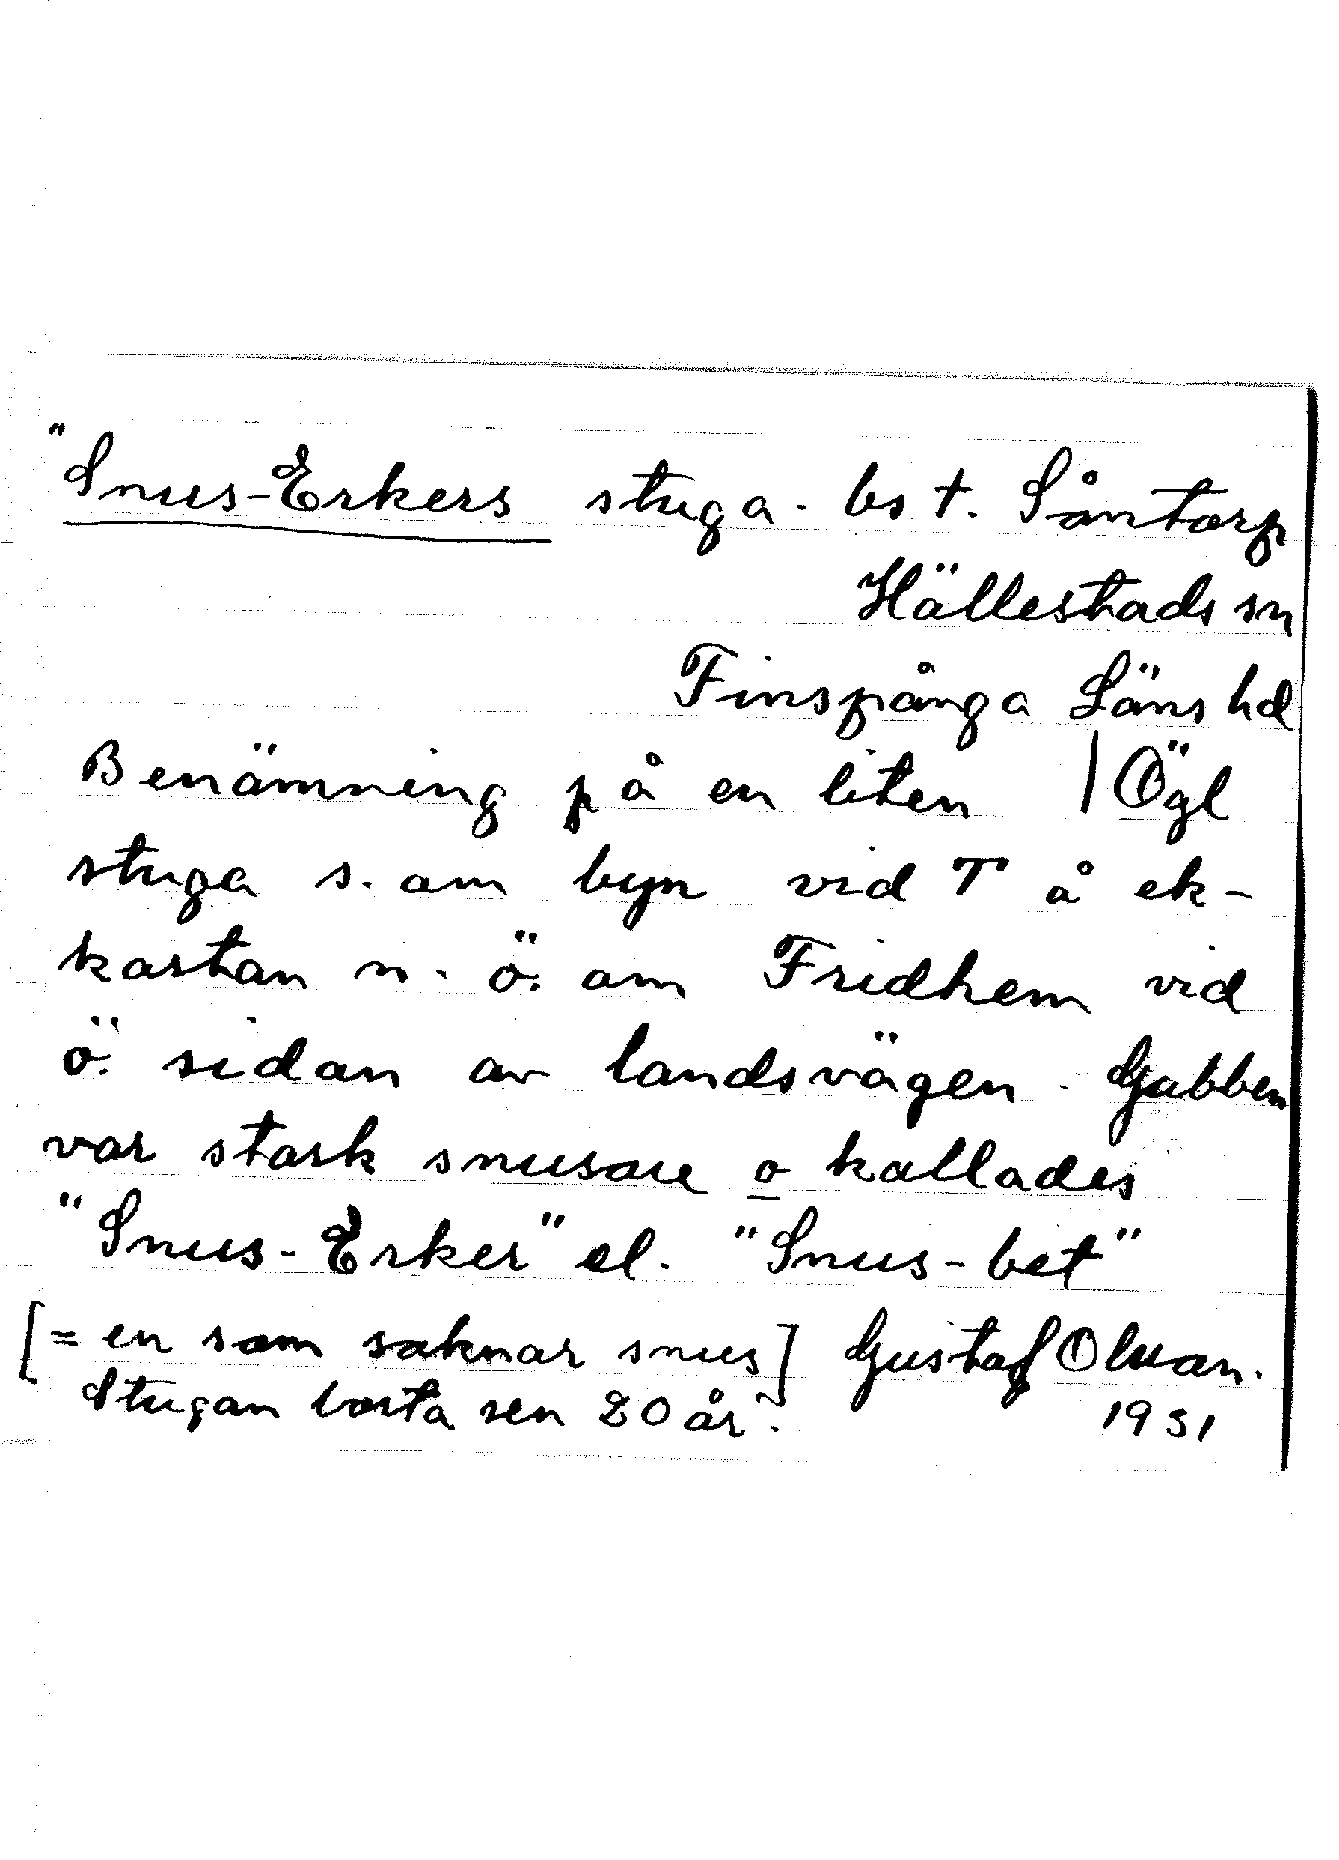 "Snus-Erkers stuga. bs t. Såntorp
Hällestads sn
Finspånga Läns hd
Benämning på en liten | Ögl
stuga s. om byn vid T å ek-
kartan n. ö. om Fridhem vid
ö. sidan av landsvägen. Gubben
var stark snusare o kallades
"Snus-Erker" el. "Snus-bet"
[= en som saknar snus] Gustaf Olsson.
Stugan borta sen 20 år. 1931